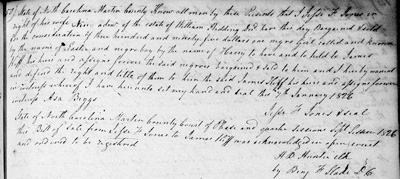 State of North Carolina Martin County Know all men by these Presents that I Jesse F. Jones in
right of his wife admr of the estate of William Redding Decd have this day Bargained & sold
in the consideration of three hundred and ninety five dollars one negro girl called and known
by the name of and negro boy by the name of Harry to have and to hold to James
his heirs and assigns forever the said negroes bargained & sold to him and I hereby warrant
and defend the right and title of them to him the said James his heirs and assigns forever
in witness whereof I have hereunto set my hand and seal this 7th January 1826
witness Asa Biggs Jesse F Jones seal
State of North Carolina Martin County Court of Pleas and quarter Sessions Sept Session 1826
this Bill of Sale from Jesse F Jones to James was acknowledged in open court
and ordered to be registered
H D Hunter clk
by Benj F Slade D.C.